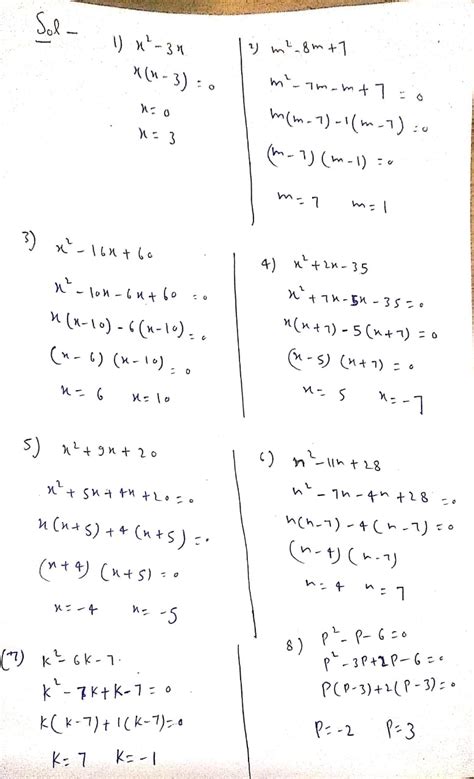 Sol -
1) x² - 3x
x(x-3) = 0
x = 0
x = 3
2) m² - 8m + 7
m² - 7m - m + 7 = 0
m(m-7) - 1(m-7) = 0
(m-7) (m-1) = 0
m = 7 m = 1
3) x² - 16x + 60
x² - 10x - 6x + 60 = 0
x(x-10) - 6(x-10) = 0
(x-6) (x-10) = 0
x = 6 x = 10
4) x² + 2x - 35
x² + 7x - 5x - 35 = 0
x(x+7) - 5(x+7) = 0
(x-5) (x+7) = 0
x = 5 x = -7
5) x² + 9x + 20
x² + 5x + 4x + 20 = 0
x(x+5) + 4(x+5) = 0
(x+4) (x+5) = 0
x = -4 x = -5
6) n² - 11n + 28
n² - 7n - 4n + 28 = 0
n(n-7) - 4(n-7) = 0
(n-4) (n-7)
n = 4 n = 7
(7) k² - 6k - 7
k² - 7k + k - 7 = 0
k(k-7) + 1(k-7) = 0
k = 7 k = -1
8) p² - p - 6 = 0
p² - 3p + 2p - 6 = 0
p(p-3) + 2(p-3) = 0
p = -2 p = 3